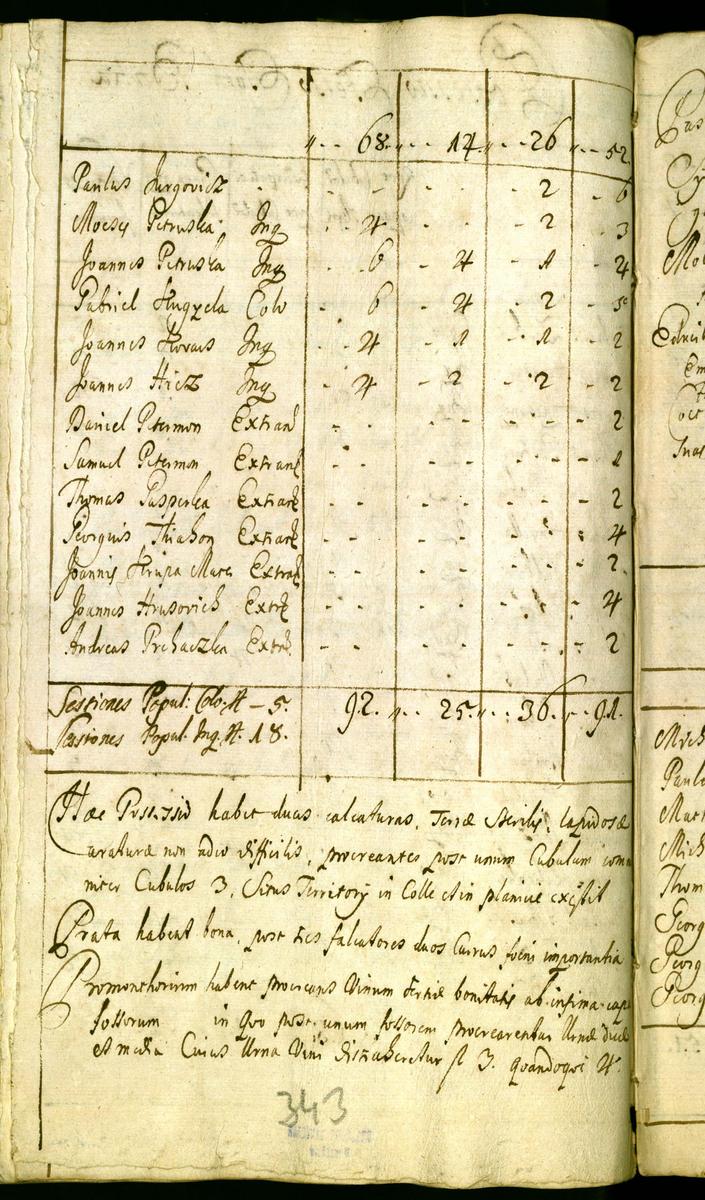 68. 14. 26 52.
Paulus Jurgovicz 2 6
Moeses Petruska Inq 4 2 3
Joannes Petruska Inq 6 4 1 4
Gabriel Colo 6 4 2 5
Joannes Kovacs Inq 4 1 1 2
Joannes Hicz Inq 4 2 2 2
Daniel Petermon Extran 2
Samuel Petermon Extran 1
Thomas Pasperka Extran 2
Georgius Extran 4
Joannis Krupa Mare Extran 2
Joannes Hrusovich Extr 4
Andreas Prhaczka Extr 2
Sessiones Popul: Colo: 4 – 5. 92. 25. 36. 91.
Sessiones Popul. Inq. 4. 18.
Hae Possessio habet duas calcaturas, Terrae Sterilis, lapidosae
araturae non adeo difficilis, procreantes post unum Cubulum com
niter Cubulos 3, Situs Territorij in Colle et in planicie existit
Prata habent bona, post tres falcatores duos Currus foeni importantia
Promonthorium habent procreans Vinum tertiae bonitatis ab infima
fossorum in quo post unum fossorem procrearentur Urnae
et media Cuius Urna Vini distraheretur fl 3. quandoque 4.
343